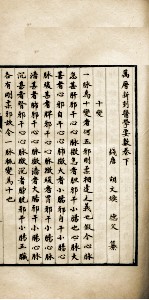 醫學要數卷下
錢唐 胡文煥 德父 纂
十變
一脉為十變者何也五邪剛柔相逢之義也假令心脉
急甚者肝邪干心心脉微急者膽邪干小腸也心脉大
甚者心邪自干心心脉微大者小腸邪自干小腸心脉
緩甚者脾邪干心心脉微緩者胃邪干小腸心脉
濇甚者肺邪干心心脉微濇者大腸邪干小腸心脉
沉甚者腎邪干心心脉微沉者膀胱邪干小腸五臟
各有剛柔邪故令一脉輒變為十也